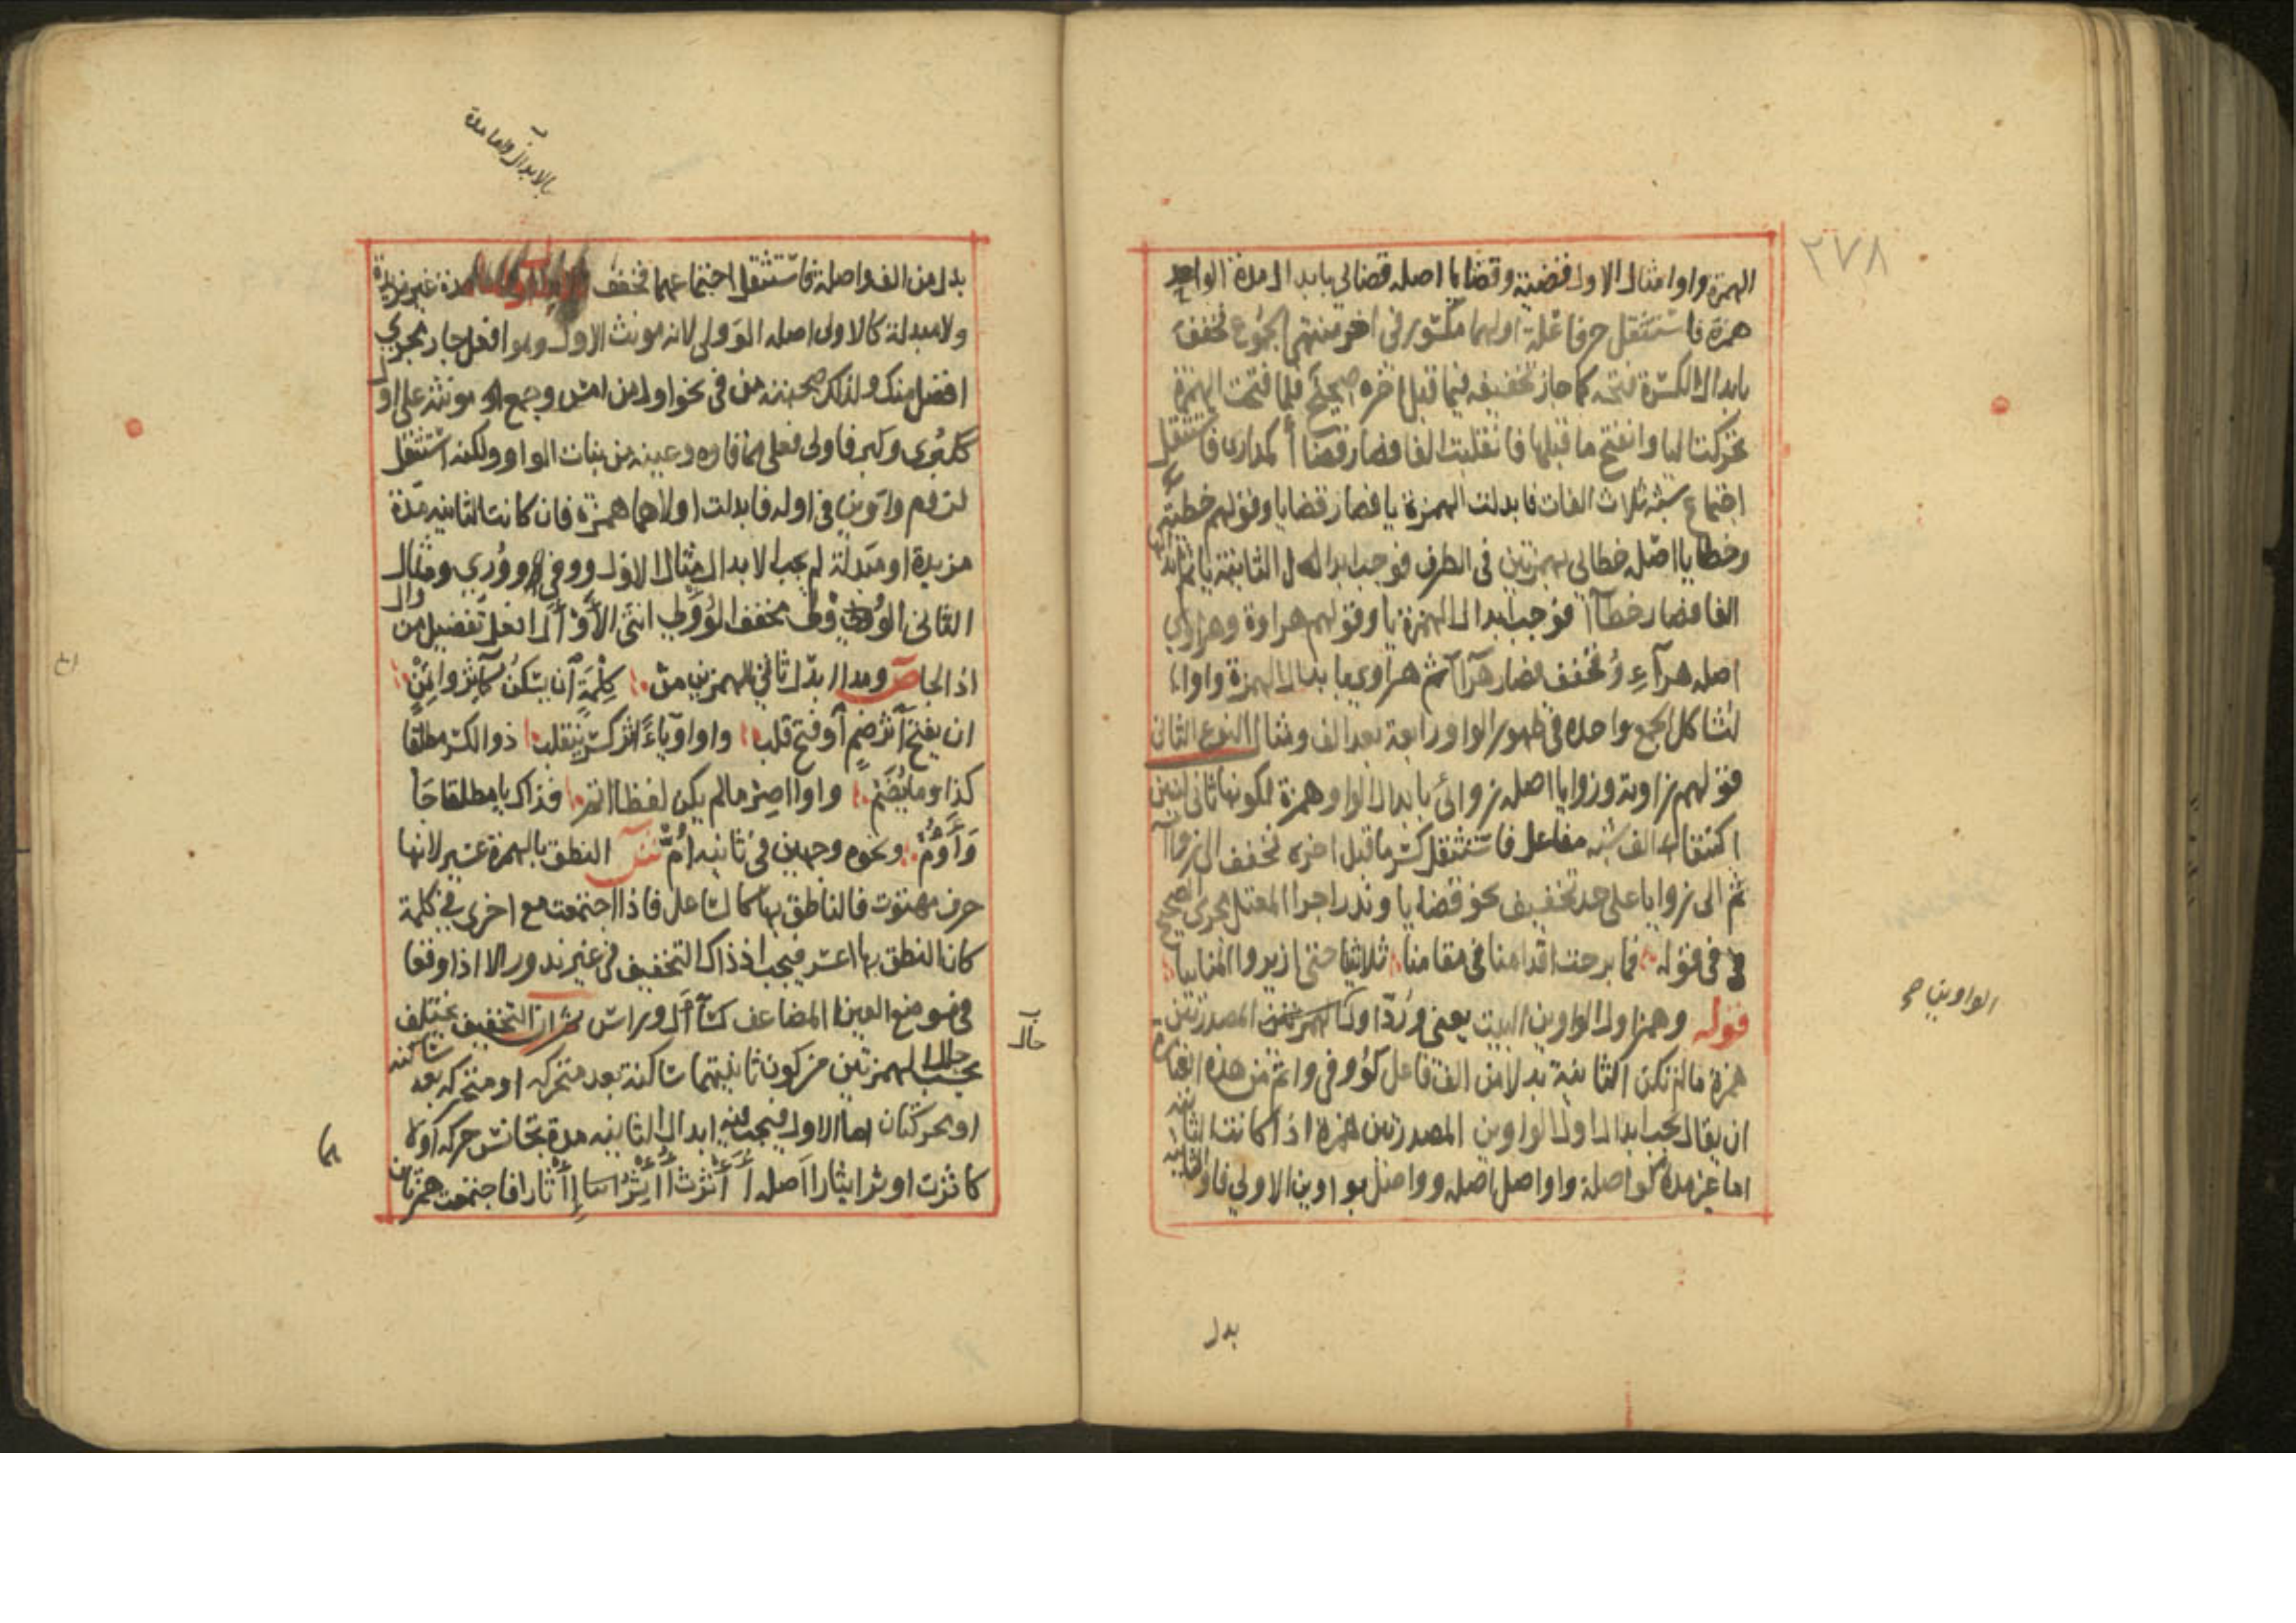 ٢٧٨
الهمزة واوا مثال الاول قضية وقضايا اصله قضائي بابدال مدة الواحد
همزة فاستثقل حرفا علة اولهما مكسور في اخر منتهى الجموع فخفف
بابدال الكسرة فتحة كما جاز تخفيفه فيما قبل اخره صحيح فلما فتحت الهمزة
تحركت اليا وانفتح ما قبلها فانقلبت الفا فصار قضاأ كمدارى فاستثقل
اجتماع شبه ثلاث الفات فابدلت الهمزة يا فصار قضايا وقولهم خطيئة
وخطايا اصله خطائي بهمزتين في الطرف فوجب ابدال الثانية يا ثم
الفا فصار خطاآ فوجب ابدال الهمزة يا وقولهم هراوة وهراوي
اصله هرآءِ وُ فخفف فصار هرآآ ثم هراوي با بدال الهمزة واوا
لتشاكل الجمع واحده في ظهور الواو رابعة بعد الف ومثال النوع الثاني
قولهم زاوية وزوايا اصله زوائي بابدال الواو همزة لكونها ثاني لينين
اكتنفا الف شبه مفاعل فاستثقل كسر ما قبل اخره فخفف الى زواآ
ثم الى زوايا على حد تخفيف نحو قضايا وندر اجرا المعتل مجرى الصحيح
في قوله فما برحت اقدامنا في مقامنا ثلاثتنا حتى ازيروا المنايا
قوله وهمزا اول الواوين البيت يعني ورُدّ اول المصدرتين
همزة ما لم تكن الثانية بدلا من الف فاعل كوُوفي واتم من هذه
ان يقال يجب ابدال اول الواوين المصدرتين همزة اذا كانت الثانية
اما غير مدة كواصلة واواصل اصله وواصل بواوين الاولى فا والثانية
الواوين صح
بدل
بالابدال واما مدة
بدل من الف واصلة فاستثقل اجتماعهما فخفف مدة غير مزيدة
ولا مبدلة كالاولى اصله الوولى لانه مونث الاول وهو افعل جار مجرى
افضل منك ولذلك صحبته من في نحو اول من امس وجمع مونثه على اول
ككبرى وكبر فاولى فعلى مما فاوه وعينه من بنات الواو ولكنه استثقل
لزوم واوين في اوله فابدلت اولاهما همزة فان كانت الثانية مدة
مزيدة او مبدلة لم يجب الابدال مثال الاول ووفي وووري ومثال
الثاني الوُولى مخفف الوُؤلى انثى الأوْأل افعل تفضيل من وال
اذا لجا ص ومدا ابدل ثاني الهمزين من كِلْمَةٍ ان يسكن كآثر وائتمن
ان يفتح اثر ضم او فتح قلب واوا وياءً اثر كسر ينقلب ذو الكسر مطلقا
كذا وما يُضَم واوا اصِر ما لم يكن لفظا اتم فذاك يا مطلقا جا
وَأَؤُمُّ ونحوه وجهين في ثانيه اُمّ ش النطق بالهمزة عسير لانها
حرف مهتوت فالناطق بها كالساعل فاذا اجتمعت مع اخرى في كلمة
كان النطق بها اعسر فيجب اذ ذاك التخفيف في غير ندور الا اذا وقعا
في موضع العين المضاعف كسآل ورآس ثم ان التخفيف يختلف
بحسب حال الهمزتين من كون ثانيتهما ساكنة بعد متحركة او متحركة بعد ساكنة
او تحركتان اما الاول فيجب فيه ابدال الثانية مدة تجانس حركة اولا
كاثرت اوثر ايثارا اصله أَأْثرت أُأْثر إِأْثارا فاجتمعت همزتان
حال
ها